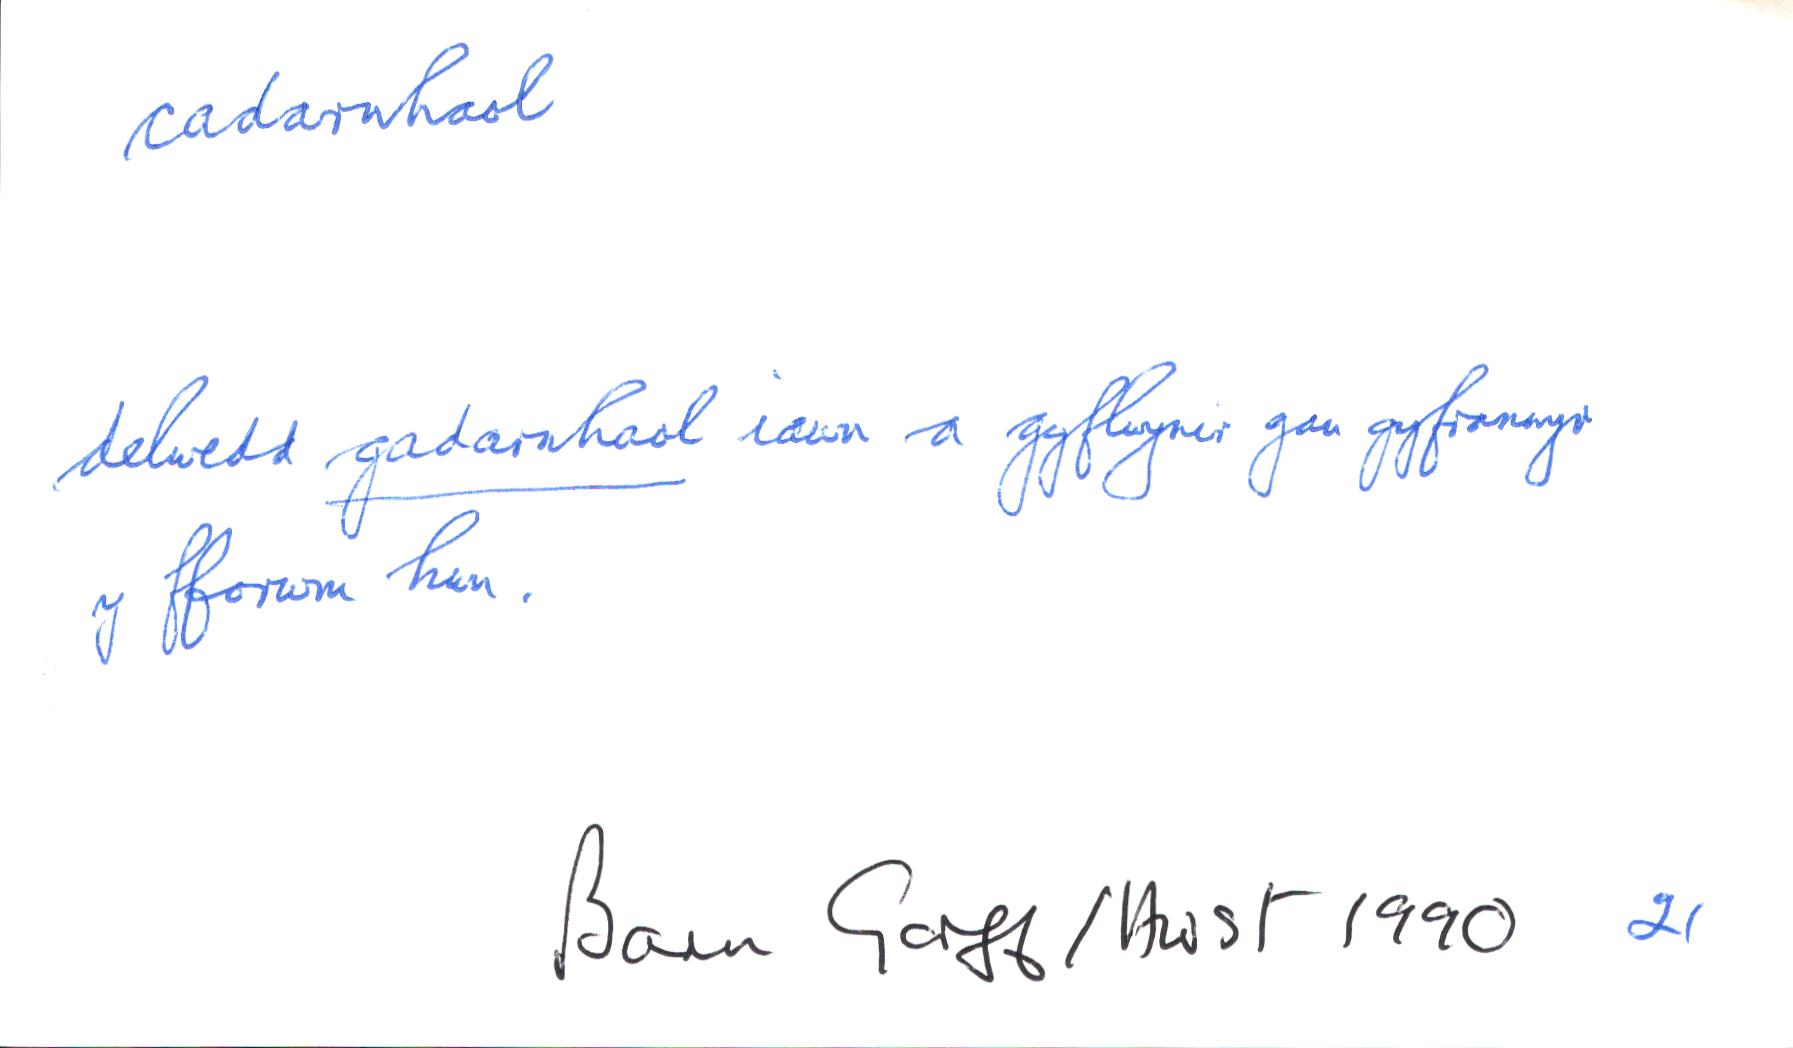 cadarnhaol
delwedd gadarnhaol iawn a gyflwynir gan gyfranwyr
y fforwm hwn.
Barn Gorff/Awst 1990 21